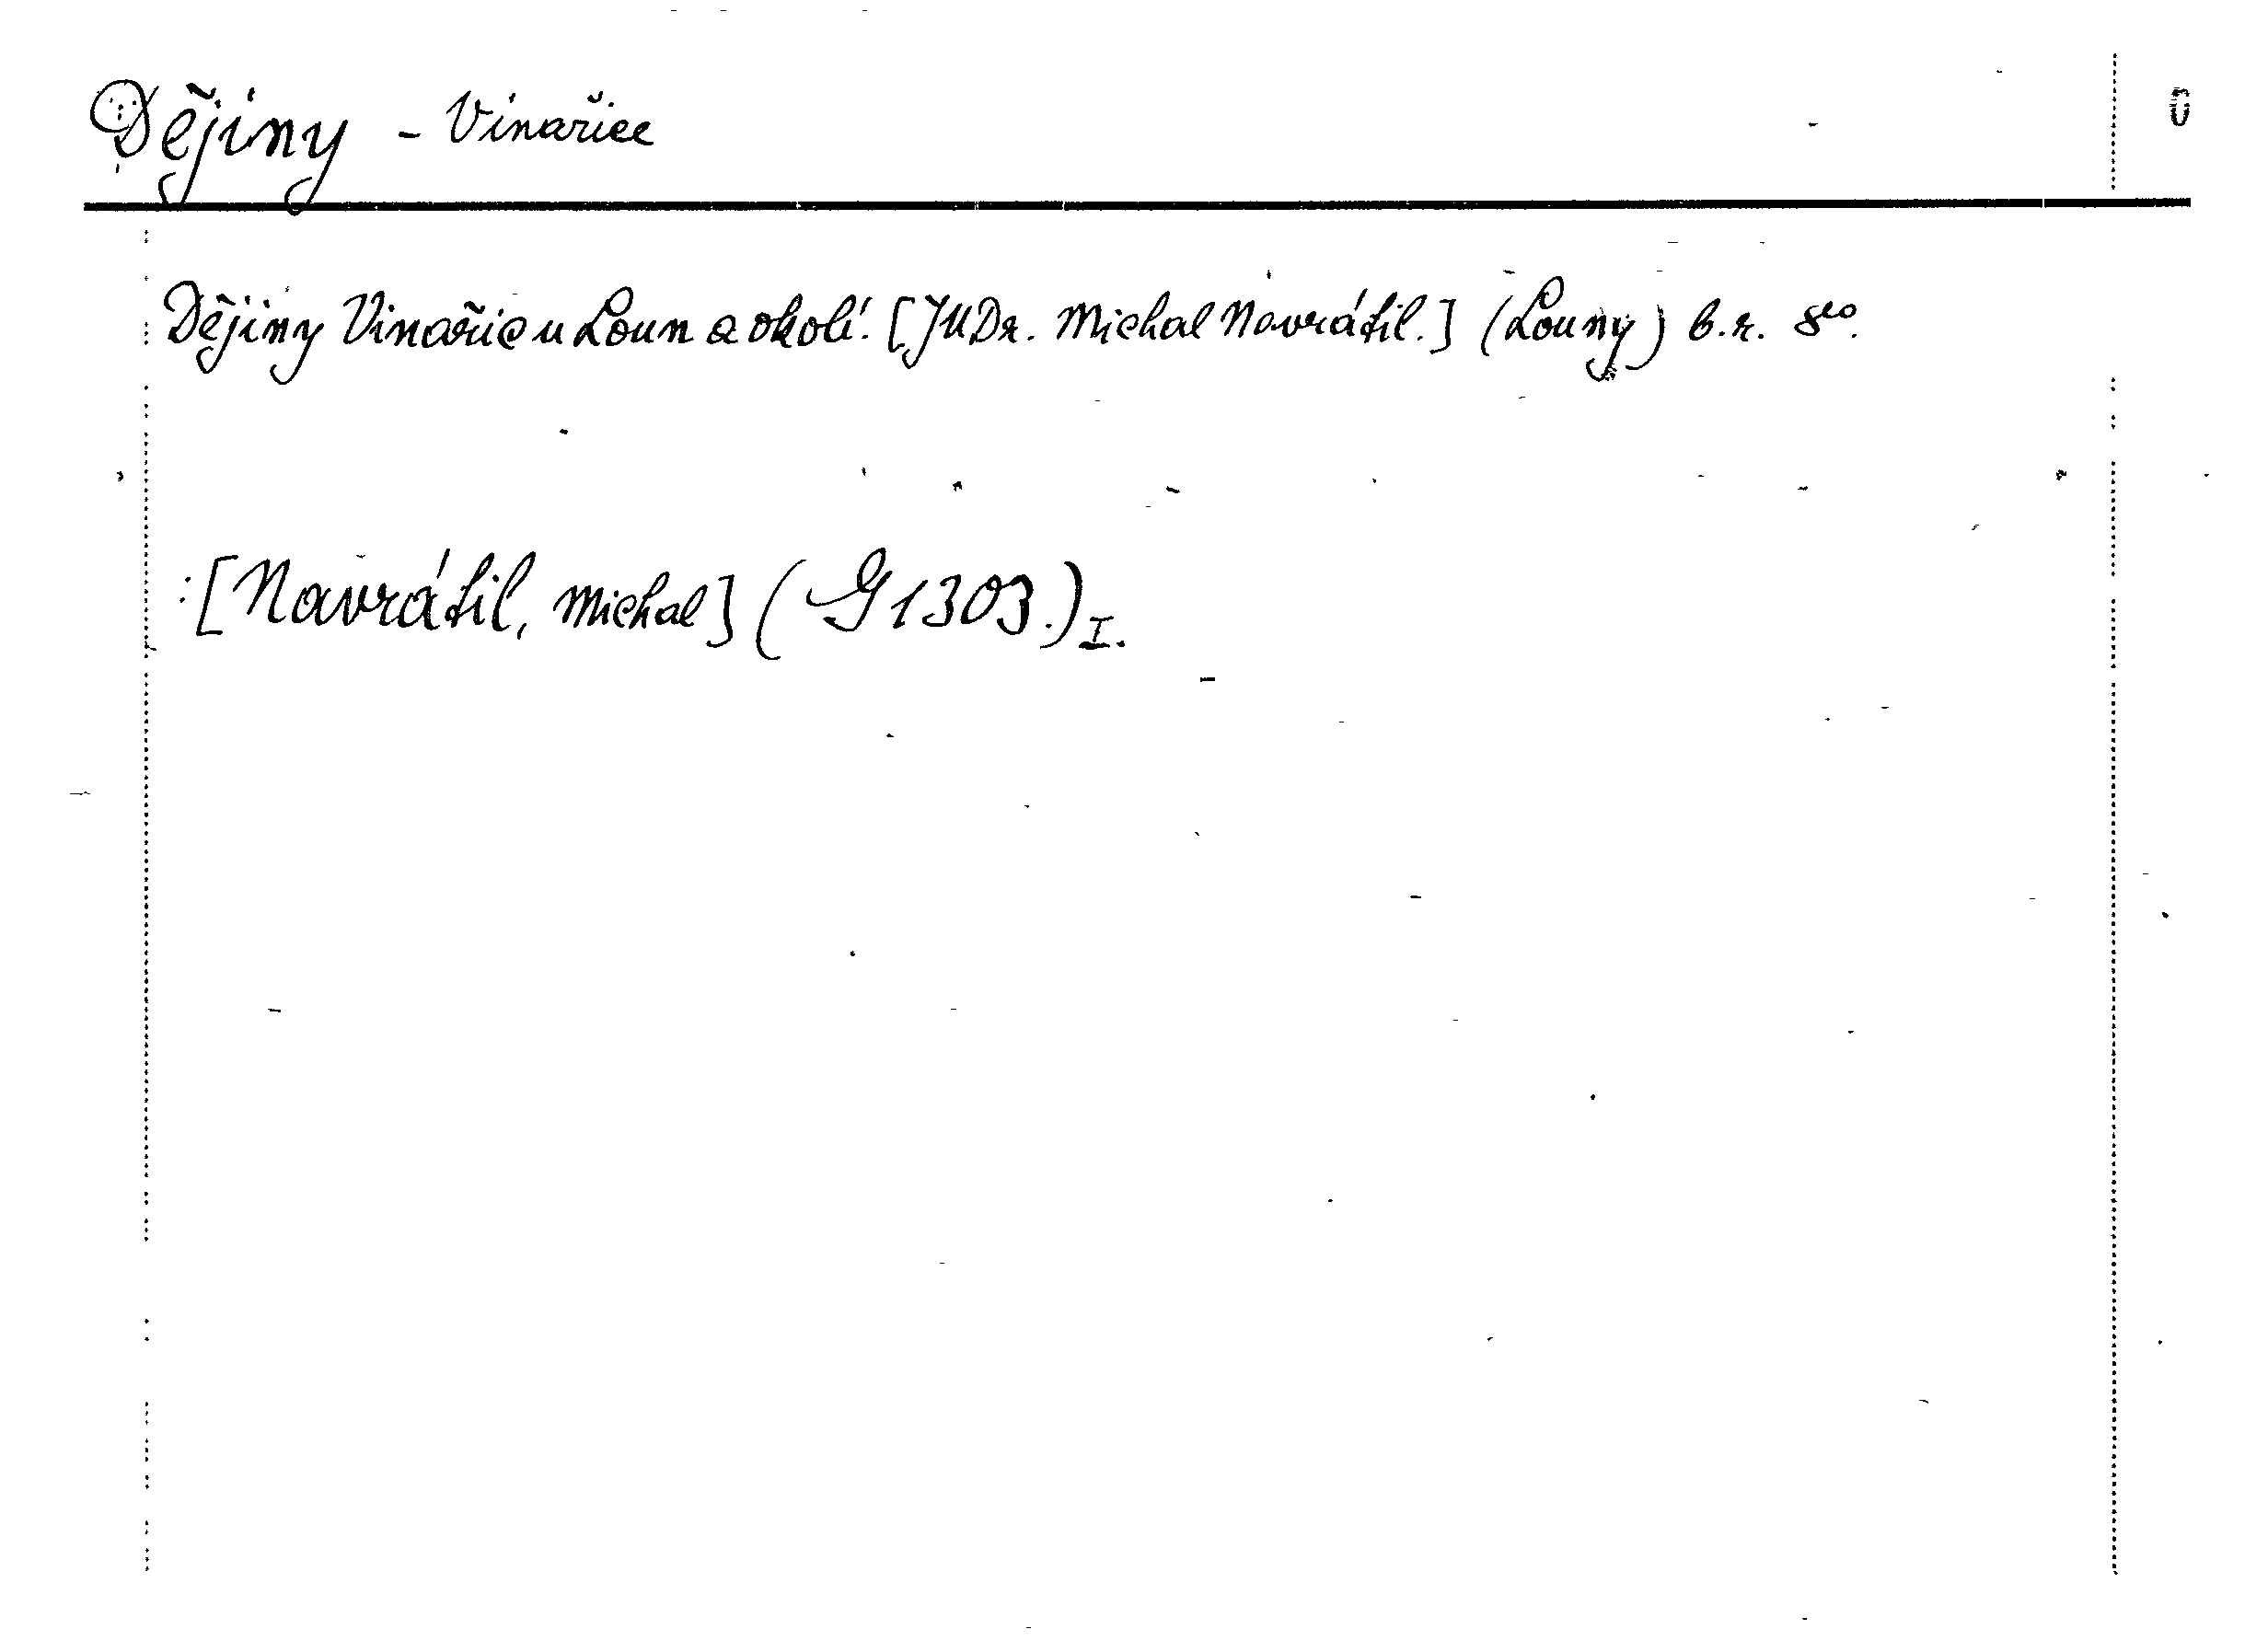 Dějiny - Vinařice
Dějiny Vinařic u Loun a okolí. [JUDr. Michal Navrátil.] (Louny) b.r. 8vo.
:[Navrátil, Michal] (G1303.) I.